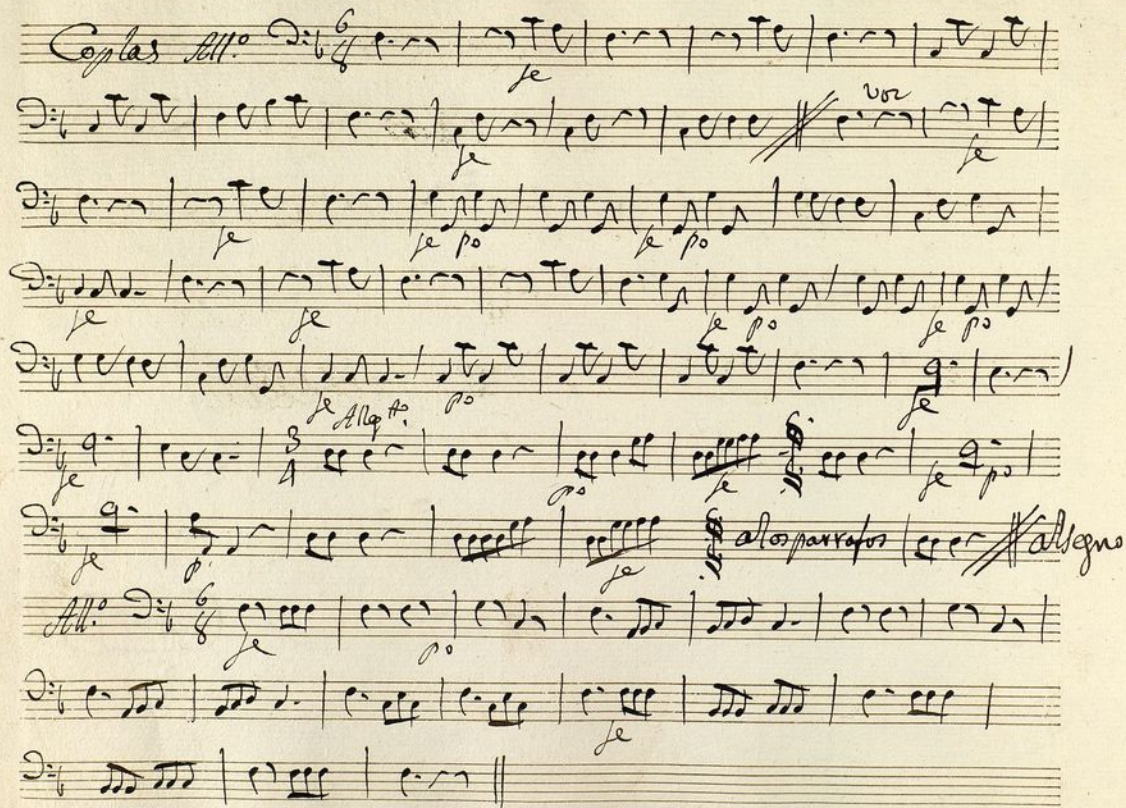 Coplas All.º 6 8
fe
voz
fe fe
fe fe po fe po
fe fe fe po fe po
fe po fe
Allegt.º
fe 3 4 po fe fe po
fe p.º fe a los parrafos al segno
All.º 6 8
fe po
fe